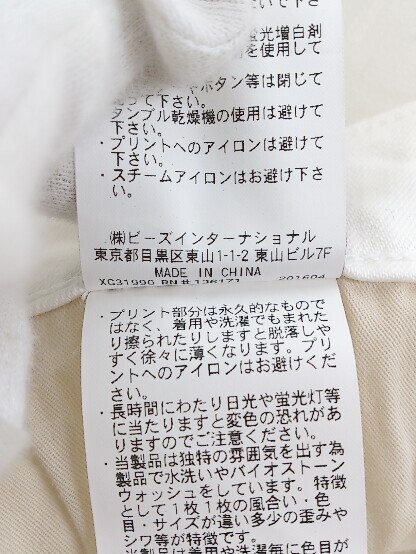 蛍光増白剤
を使用して
ボタン等は閉じて
下さい。
タンブル乾燥機の使用は避けて
下さい。
・プリントへのアイロンは避けて
下さい。
・スチームアイロンはお避け下さ
い。
㈱ビーズインターナショナル
東京都目黒区東山1-1-2 東山ビル7F
MADE IN CHINA
XG31990 RN# 136171 201604
・プリント部分は永久的なもので
はなく、着用や洗濯でもまれた
り擦られたりしますと脱落しや
すく徐々に薄くなります。プリ
ントへのアイロンはお避けくだ
さい。
・長時間にわたり日光や蛍光灯等
に当たりますと変色の恐れがあ
りますのでご注意ください。
・当製品は独特の雰囲気を出す為
製品で水洗いやバイオストーン
ウォッシュをしています。特徴
として1枚1枚の風合い・色
目・サイズが違い多少の歪みや
シワ等が特徴です。
当製品は着用や洗濯毎に色目が